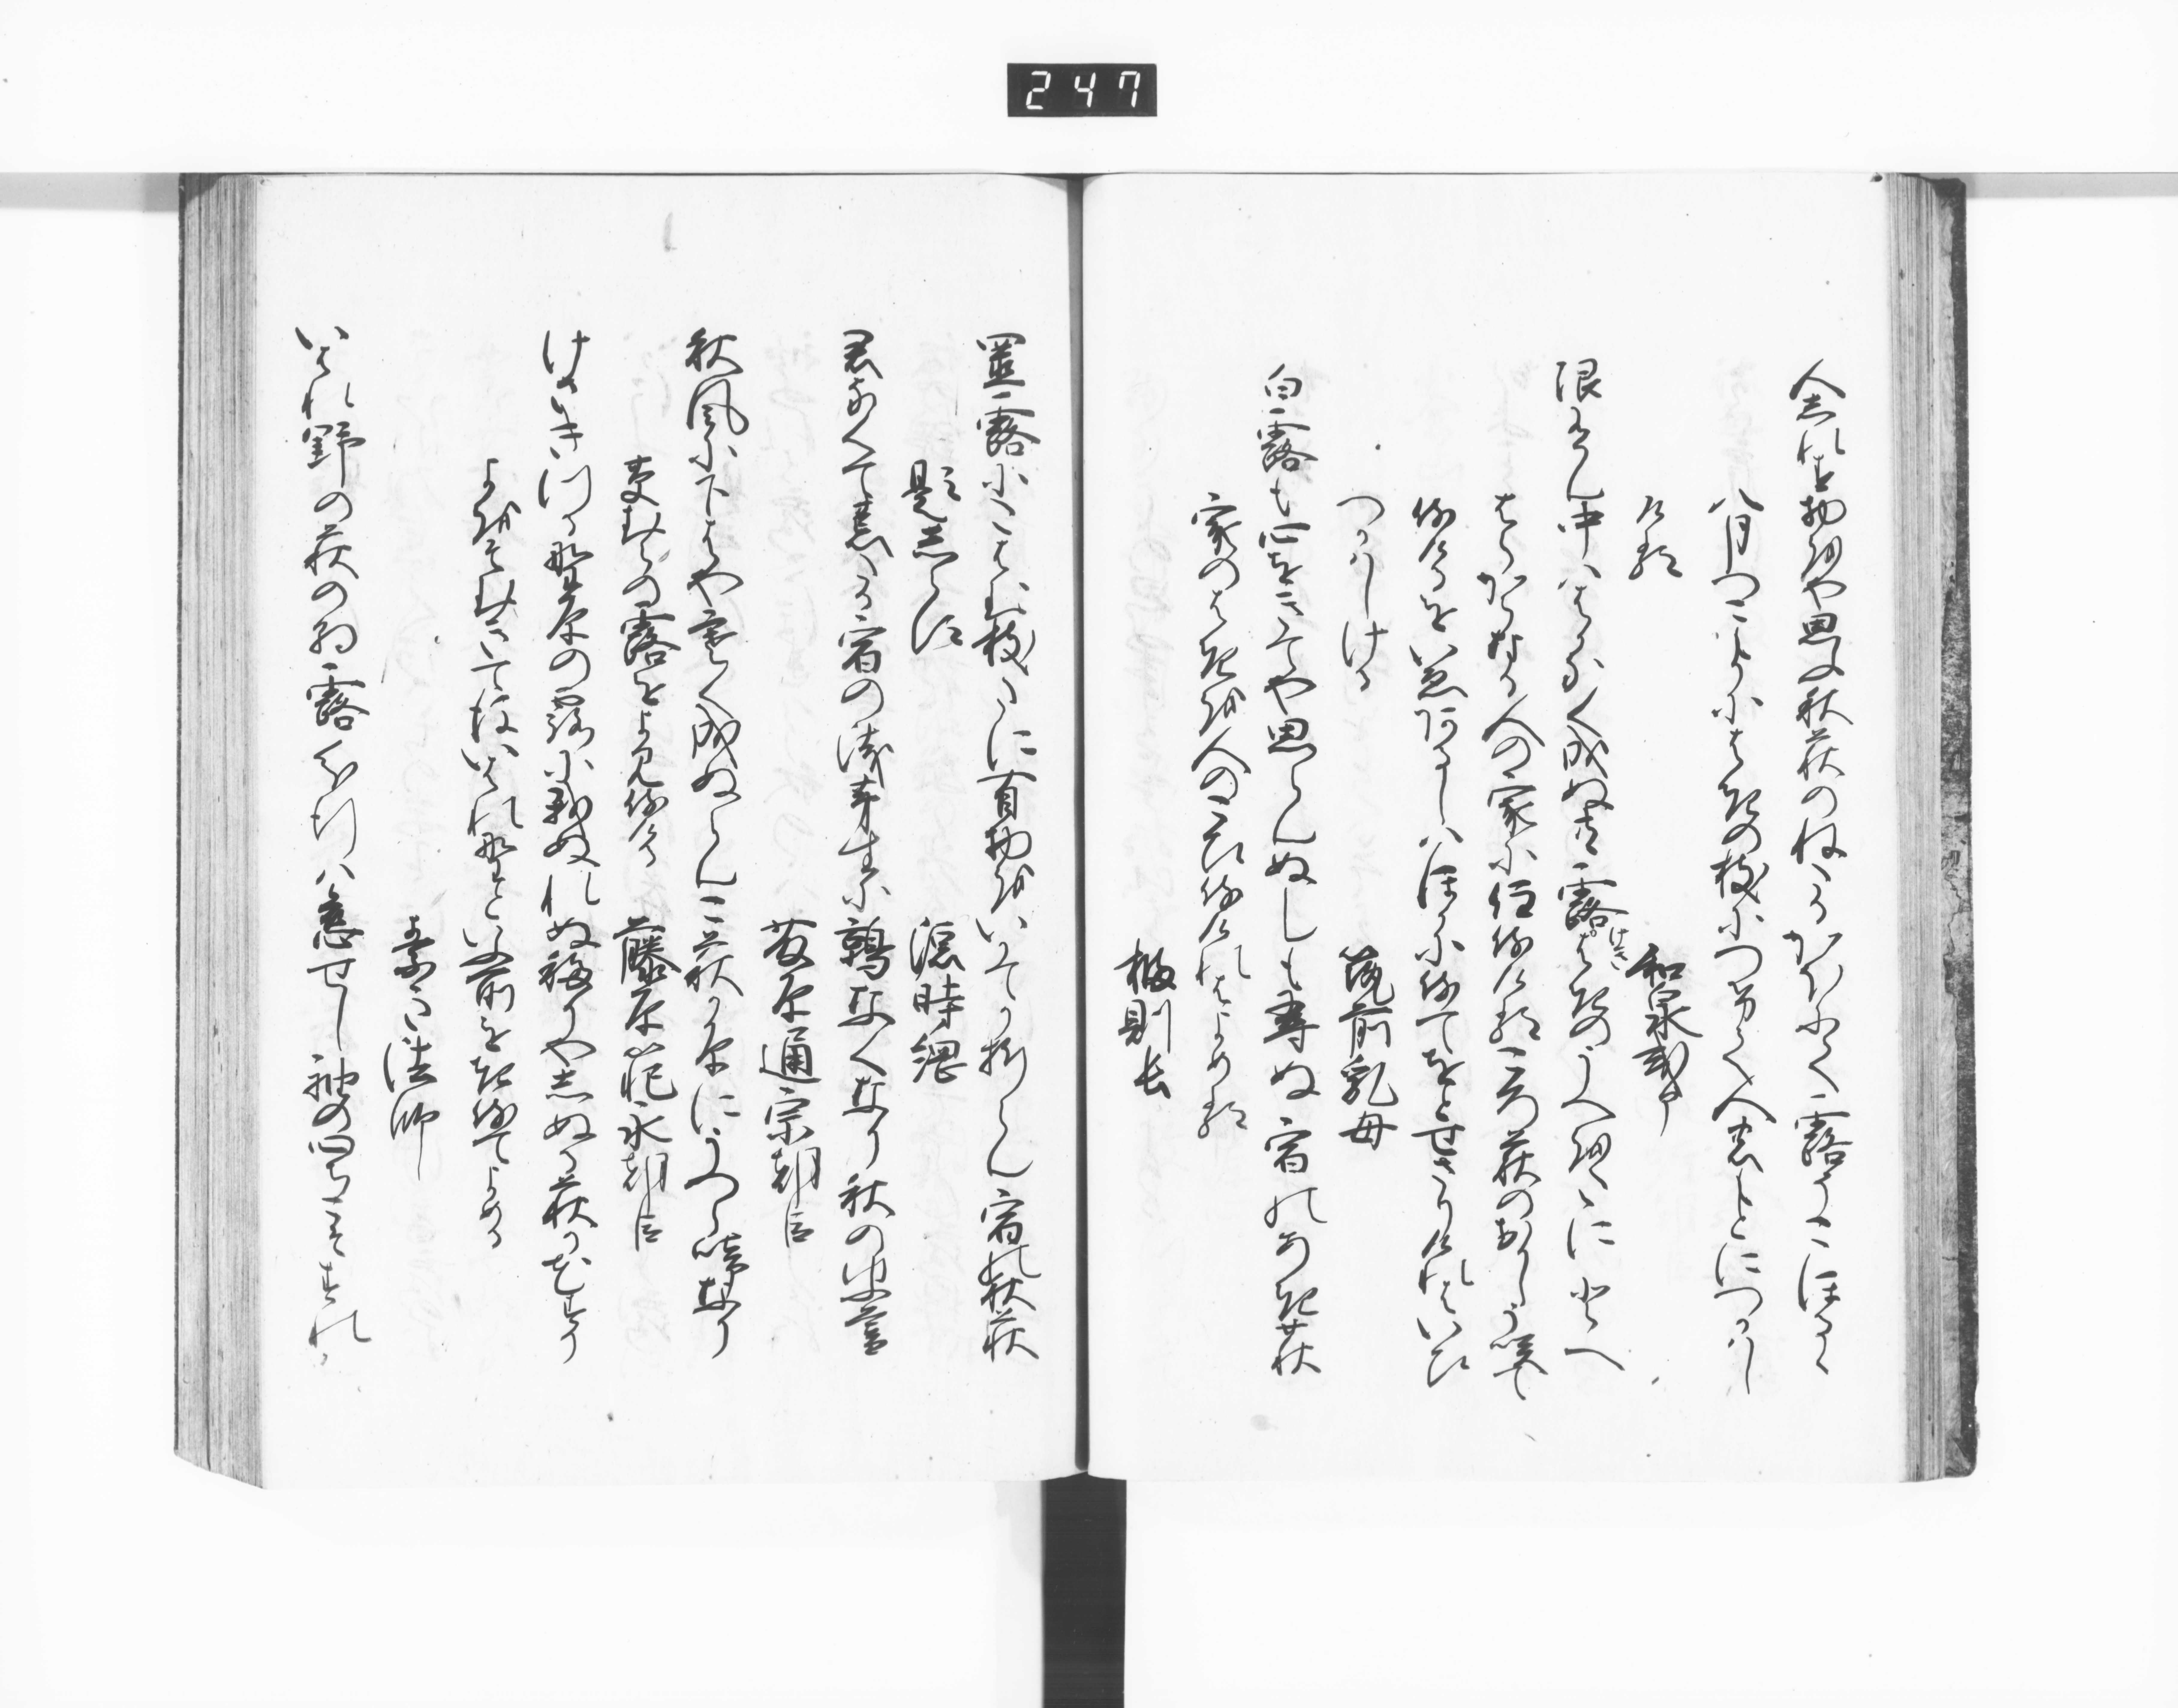 247
人しれす物をや思ふ秋萩のねたるかほにて露そこほるゝ
八月つこもりに萩の枝につけて人のもとにつかはし
ける　和泉式部
限あらん中ははかなく成ぬとも露けき萩のうへをたにとへ
はらからなる人の家に住侍ける比萩のおかしう咲て
侍けるを家あるしはほかに侍てをとせさりけれはいひ
つかはしける　筑前乳母
白露も心をきてや思ふらんぬしも尋ぬ宿の秋萩
家の萩を人のこひ侍けれはよめる
橘則長
置露にたはむ枝たに有物をいかてか折らん宿の秋萩
題しらす　源時綱
君なくて荒たる宿の浅茅生に鶉なくなり秋の夕暮
藤原通宗朝臣
秋風に下葉や寒く成ぬらんこ萩か原にうつら鳴なり
草むらの露をよみ侍ける　藤原範永朝臣
けさきつる野原の露に我ぬれぬ移りやしぬる萩か花すり
いはれ野といふ所を過侍てよめる
素意法師
いはれ野の萩の朝露分行は恋せし袖の心ちこそすれ